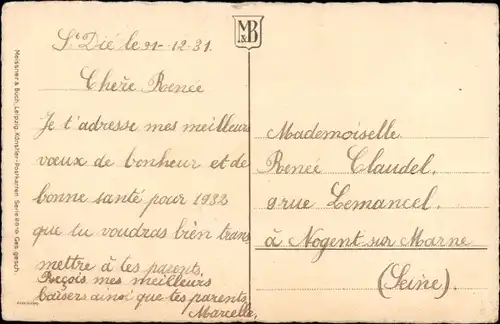 M&B
St Dié le 21-12-31
Chère Renée
Je t'adresse mes meilleurs
vœux de bonheur et de
bonne santé pour 1932
que tu voudras bien trans
mettre à tes parents.
Reçois mes meilleurs
baisers ainsi que tes parents
Marcelle.
Mademoiselle
Renée Claudel.
9 rue Lemancel.
à Nogent sur Marne
(Seine).
Meissner & Buch, Leipzig. Künstler-Postkarten. Serie Ges. gesch.